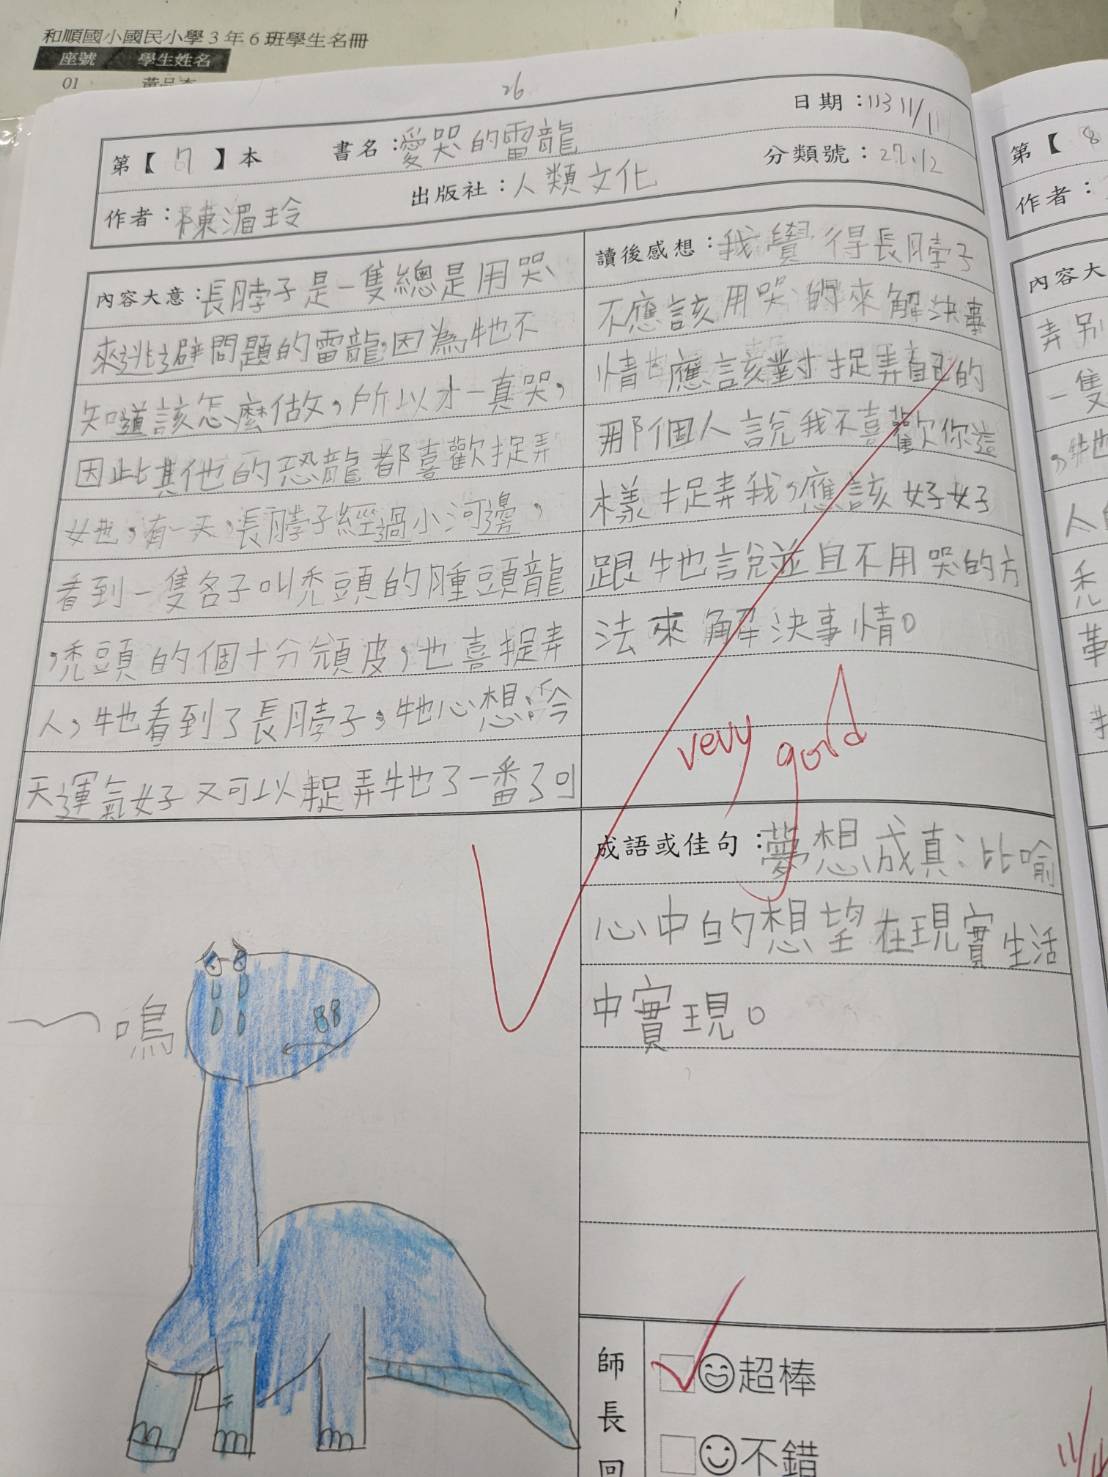 和順國小國民小學3年6班學生名冊
座號 學生姓名
01
26
第【 7 】本 書名：愛哭的雷龍 日期：113 11/11
作者：陳湄玲 出版社：人類文化 分類號：27.12
內容大意：長脖子是一隻總是用哭
來逃避問題的雷龍,因為牠不
知道該怎麼做，所以才一真哭，
因此其他的恐龍都喜歡捉弄
她，有一天，長脖子經過小河邊，
看到一隻名子叫禿頭的腫頭龍
，禿頭的個十分頑皮，也喜捉弄
人，牠看到了長脖子，牠心想：今
天運氣好又可以捉弄牠了一番了可
讀後感想：我覺得長脖子
不應該用哭的來解決事
情 應該對捉弄自己的
那個人說我不喜歡你這
樣捉弄我，應該好好
跟牠說並且不用哭的方
法來解決事情。
very good
成語或佳句：夢想成真：比喻
心中的想望在現實生活
中實現。
嗚
師長回
超棒
不錯
第【 8
作者：
內容大
弄別
一隻
，牠
人
禿